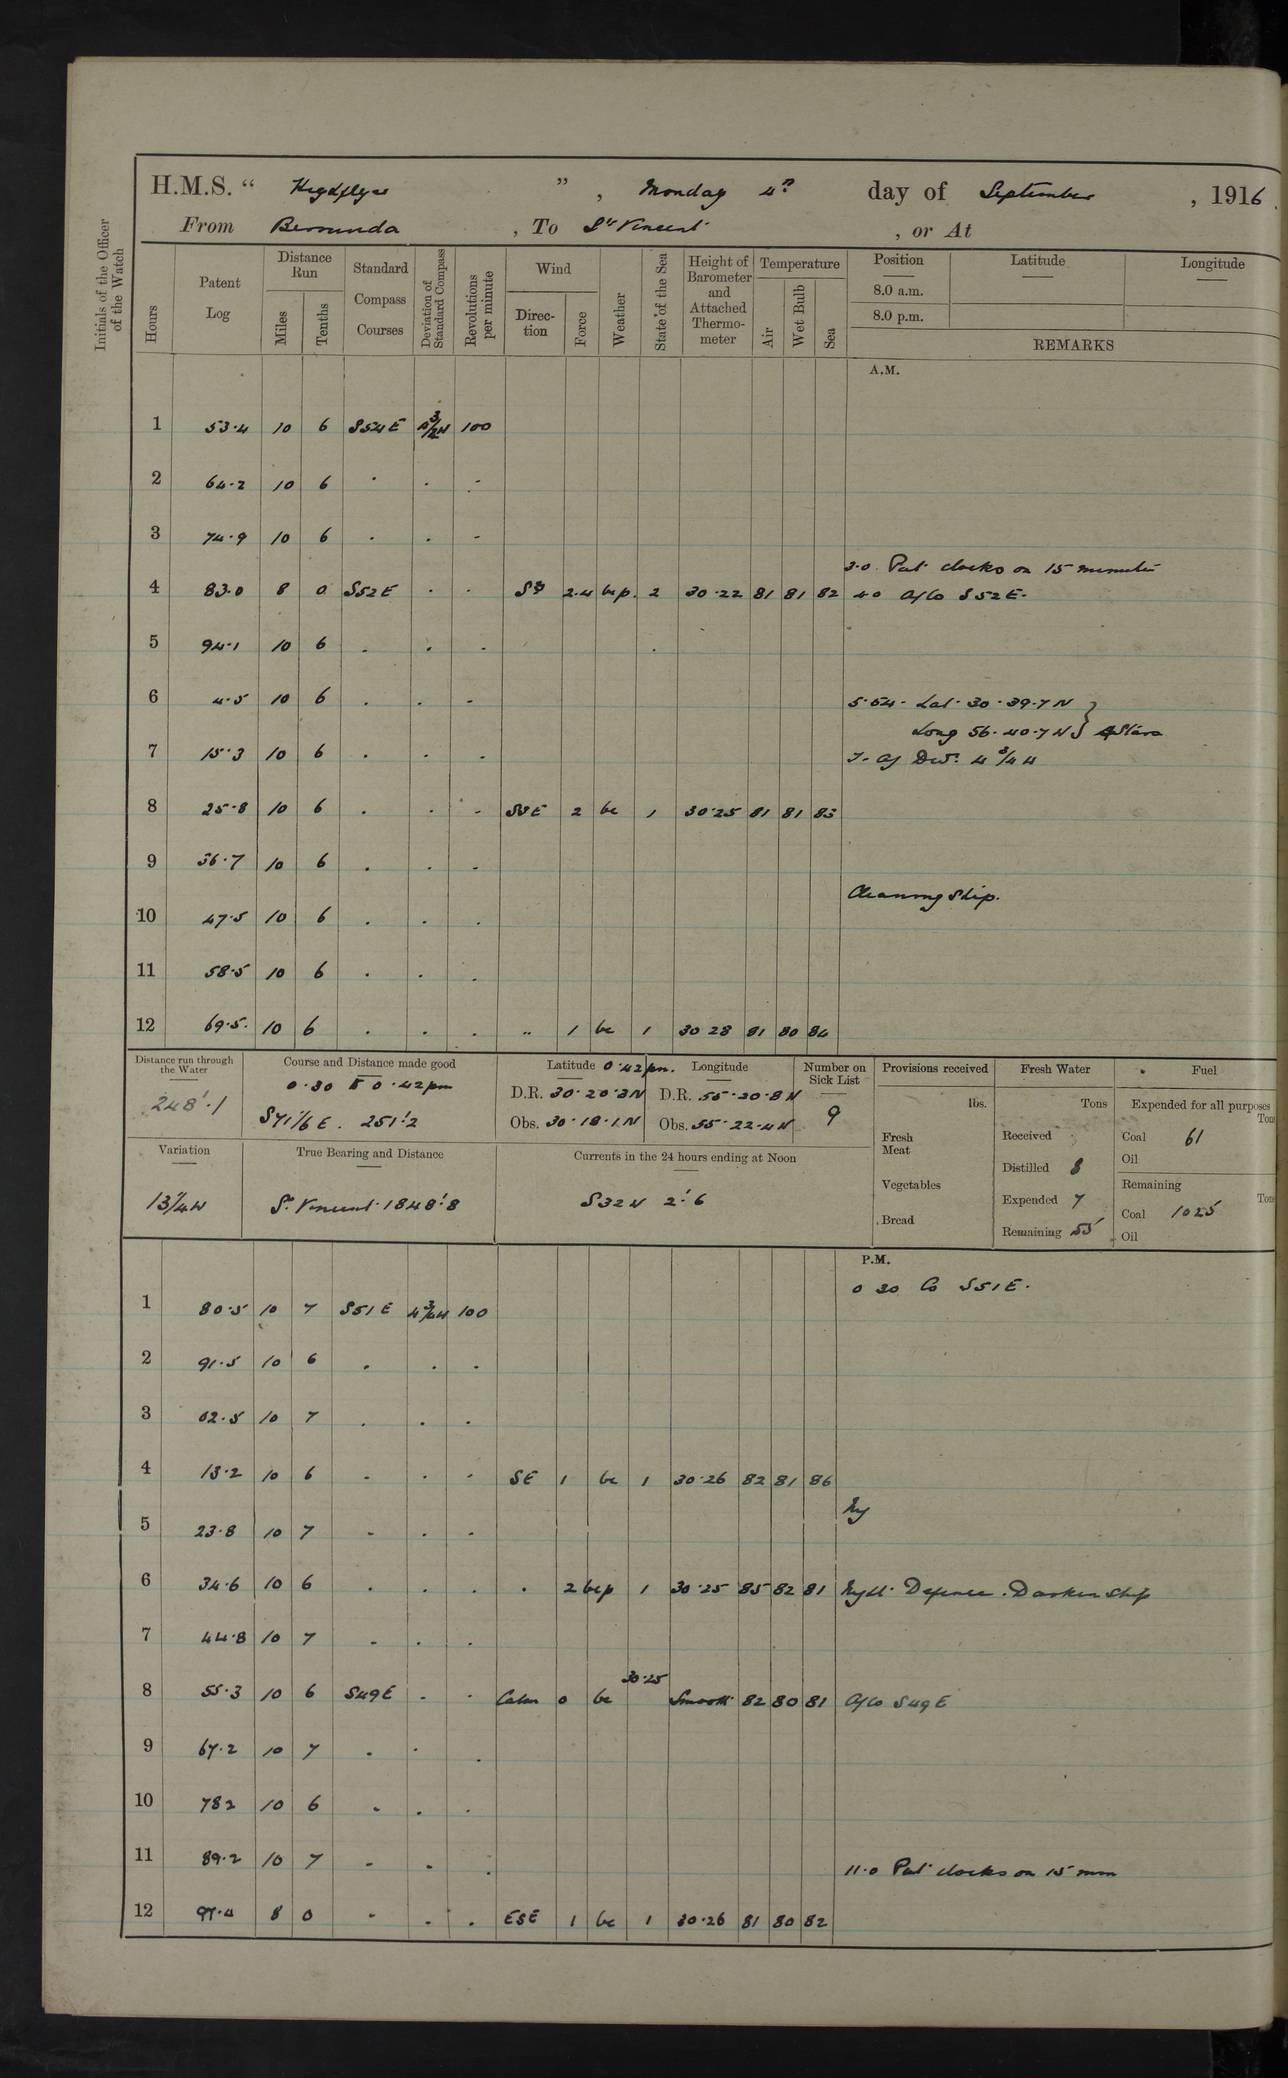 H.M.S. " Highflyer " , Monday 4th day of September , 1916.
From Bermuda , To St Vincent , or At
Initials of the Officer of the Watch
Hours
Patent Log
Distance Run
Miles
Tenths
Standard Compass Courses
Deviation of Standard Compass
Revolutions per minute
Wind
Direction
Force
Weather
State of the Sea
Height of Barometer and Attached Thermometer
Temperature
Air
Wet Bulb
Sea
Position
8.0 a.m.
8.0 p.m.
Latitude
Longitude
REMARKS
A.M.
1 53.4 10 6 S54E 100
2 64.2 10 6 . . -
3 74.9 10 6 . . -
3.0 Put clocks on 15 minutes
4 83.0 8 0 S52E . . 2.4 bcp. 2 30.22 81 81 82 4.0 A/Co S52E.
5 94.1 10 6 . . .
6 4.5 10 6 . . . 5.54. Lat. 30.39.7N
Long 56.40.7W } Stars
7 15.3 10 6 . . . 7. A/ Dev. 4 3/4 W
8 25.8 10 6 . . . SSE 2 bc 1 30.25 81 81 83
9 36.7 10 6 . . .
Cleaning Ship.
10 47.5 10 6 . . .
11 58.5 10 6 . . .
12 69.5. 10 6 . . . " 1 bc 1 30 28 81 80 84
Distance run through the Water
248'.1
Course and Distance made good
0.30 to 0.42pm
S71½E. 251'.2
Latitude 0.42pm.
D.R. 30.20.3N
Obs. 30.18.1N
Longitude
D.R. 55.20.8W
Obs. 55.22.4W
Number on Sick List
9
Provisions received
lbs.
Fresh Meat
Vegetables
Bread
Fresh Water
Tons
Received
Distilled 8
Expended 7
Remaining 55
Fuel
Expended for all purposes
Tons
Coal 61
Oil
Remaining
Tons
Coal 1025
Oil
Variation
13¼W
True Bearing and Distance
St. Vincent 1848'.8
Currents in the 24 hours ending at Noon
S32W 2'.6
P.M.
0 30 Co S51E.
1 80.5 10 7 S51E 4 3/4 W 100
2 91.5 10 6 . . .
3 02.5 10 7 . . .
4 13.2 10 6 - . - SE 1 bc 1 30.26 82 81 86
5 23.8 10 7 - . .
6 34.6 10 6 . . . . 2 bcp 1 30.25 85 82 81 Night Defence. Darken Ship
7 44.8 10 7 - . .
8 55.3 10 6 S49E . . Calm 0 bc 30.25 Smooth 82 80 81 A/Co S49E
9 67.2 10 7 . . .
10 782 10 6 . . .
11 89.2 10 7 - . .
11.0 Put clocks on 15 min
12 97.4 8 0 - . . ESE 1 bc 1 30.26 81 80 82